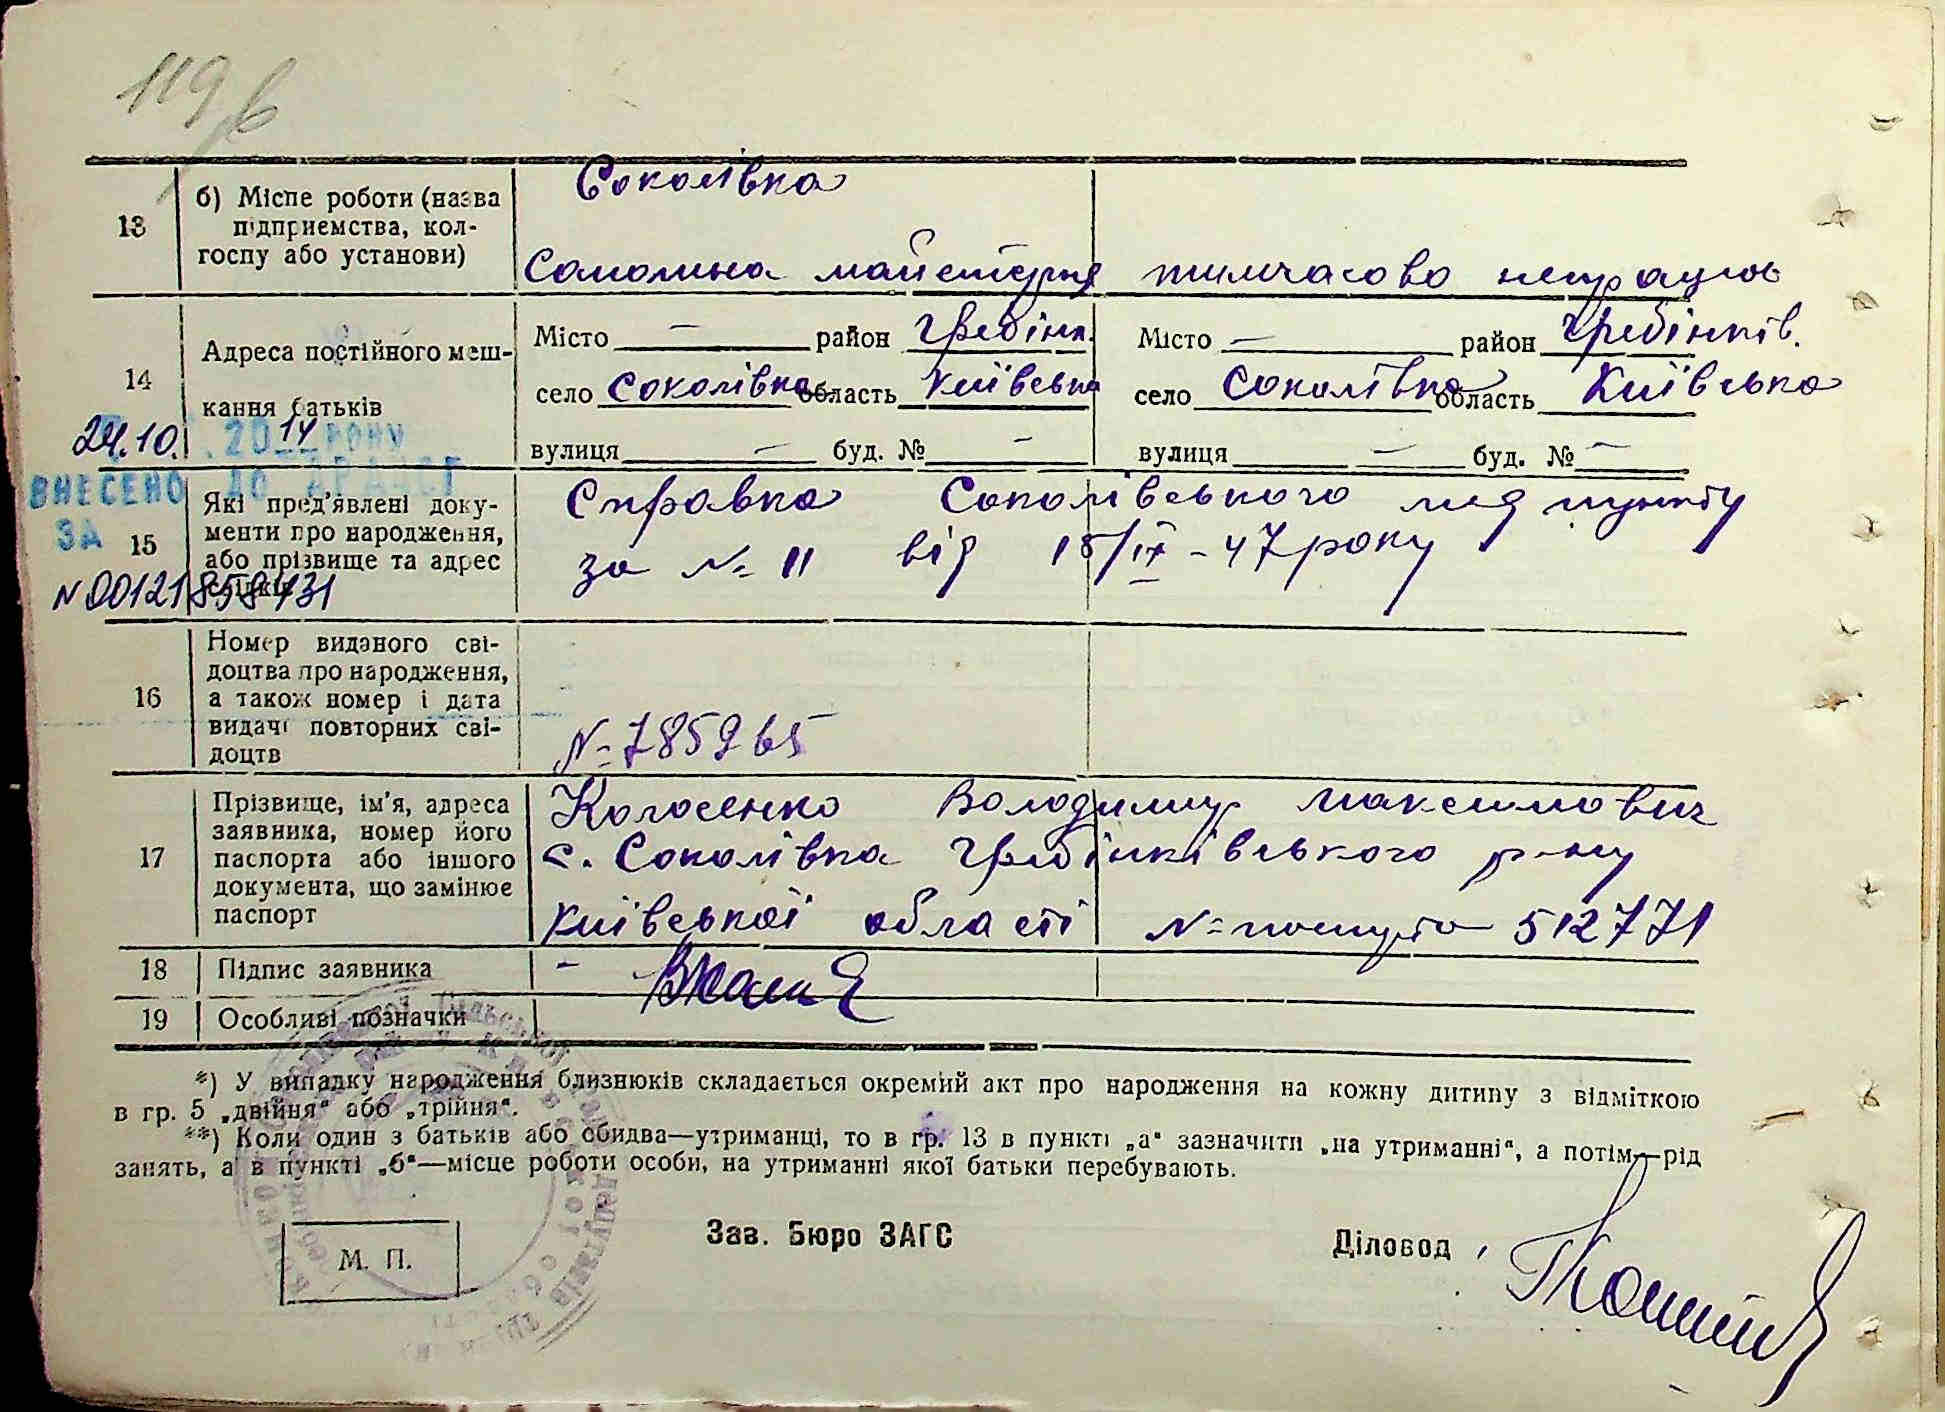 119 б
13 б) Місце роботи (назва підприємства, колгоспу або установи)
Соколівка
майстерня
тимчасово непрацює
14 Адреса постійного мешкання батьків
Місто — район Гребінк.
село Соколівка область Київська
вулиця — буд. № —
Місто — район Гребінків.
село Соколівка область Київська
вулиця — буд. № —
24.10. 2014 РОКУ
ВНЕСЕНО ДО ДРАЦСГ
ЗА
N 00121858431
15 Які пред'явлені документи про народження, або прізвище та адрес свідків
Справка Соколівського мед пункту
за № 11 від 15/IX – 47 року
16 Номер виданого свідоцтва про народження, а також номер і дата видачі повторних свідоцтв
№ 785965
17 Прізвище, ім'я, адреса заявника, номер його паспорта або іншого документа, що замінює паспорт
Володимир Максимович
с. Соколівка Гребінківського р-ну
Київської області № паспорта 512771
18 Підпис заявника –
19 Особливі позначки
*) У випадку народження близнюків складається окремий акт про народження на кожну дитину з відміткою
в гр. 5 „двійня“ або „трійня“.
**) Коли один з батьків або обидва—утриманці, то в гр. 13 в пункті „а“ зазначити „на утриманні“, а потім—рід
занять, а в пункті „б“—місце роботи особи, на утриманні якої батьки перебувають.
М. П.
Зав. Бюро ЗАГС
Діловод